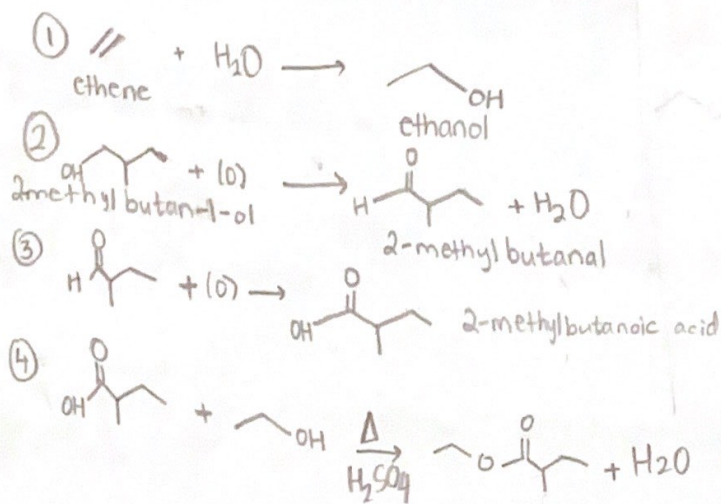 ① + H₂O →
OH
ethene
ethanol
②
OH + (O) → O H + H₂O
2methyl butan-1-ol
2-methyl butanal
③ O H + (O) → O OH 2-methylbutanoic acid
④ O OH + OH Δ H₂SO₄ → O O + H₂O